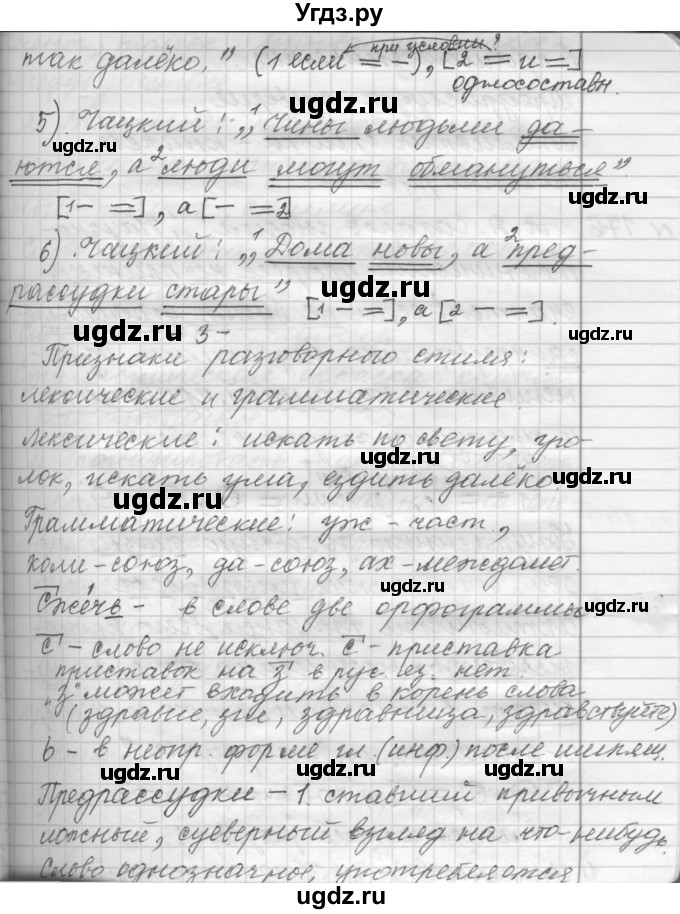 Угдз.ру
так далёко." (1 если = –), [2 = и =]
при условии?
односоставн.
ugdz.ru
5). Чацкий: „1 Чины людьми да-
ugdz.ru
ются, а 2 люди могут обмануться".
ugdz.ru
[1 – =], а [ – = 2]
ugdz.ru
6). Чацкий: „1 Дома новы, а 2 пред-
рассудки стары" [1 – =], а [2 – =].
ugdz.ru ugdz.ru
3 –
Признаки разговорного стиля:
ugdz.ru
лексические и грамматические.
Лексические: искать по свету, уго-
ugdz.ru
лок, искать ума, ездить далёко.
ugdz.ru
Грамматические: уж – част.,
коли – союз, да – союз, ах – междомет.
ugdz.ru
Сжечь – в слове две орфограммы
ugdz.ru
с – слово не исключ. с – приставка
приставок на з в рус. яз. нет.
"з" может входить в корень слова
ugdz.ru
(здравие, зги, здравница, здравствуйте)
ь – в неопр. форме гл. (инф.) после шипящ.
ugdz.ru ugdz.ru
Предрассудки – 1. ставший привычным
ложный, суеверный взгляд на что-нибудь.
ugdz.ru
Слово однозначное, употребляется
ugdz.ru